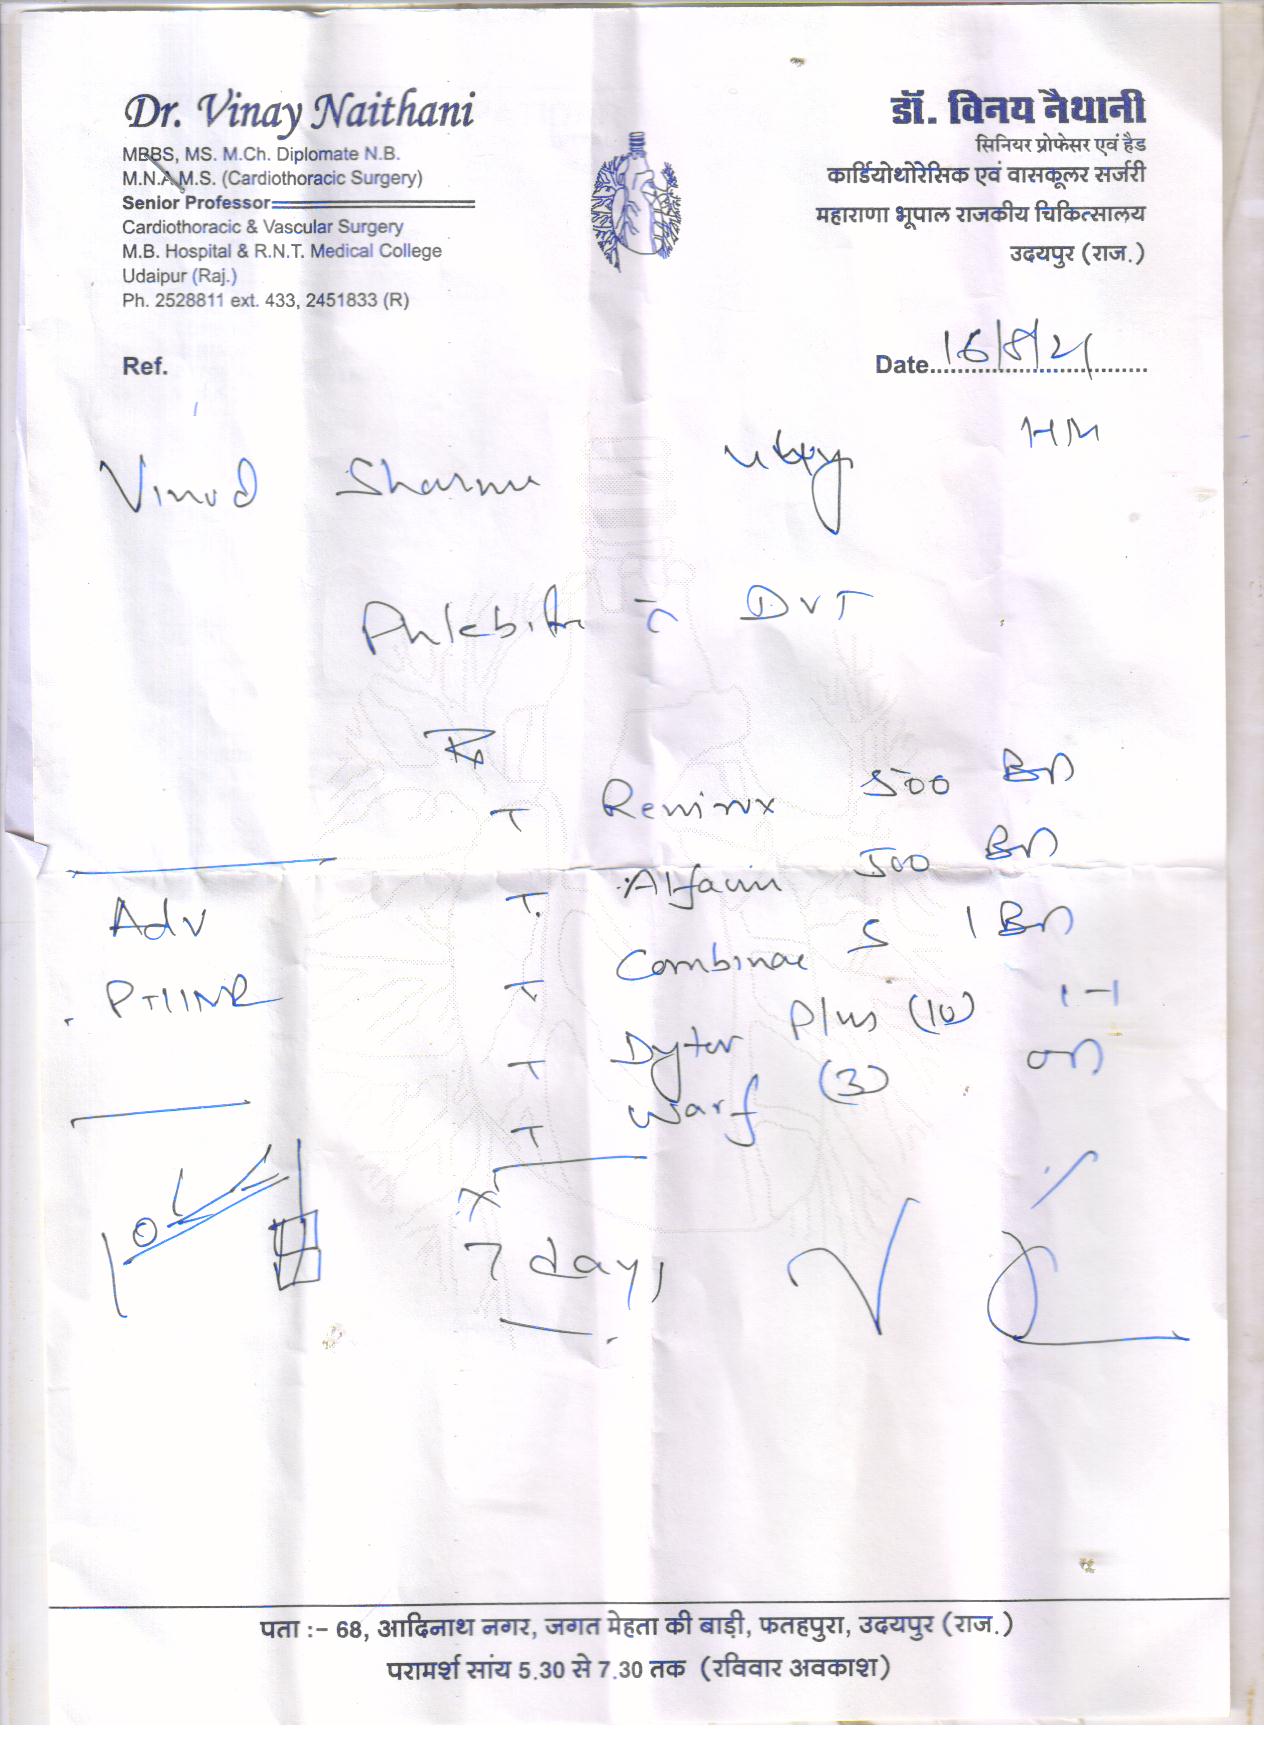 Dr. Vinay Naithani
MBBS, MS. M.Ch. Diplomate N.B.
M.N.A.M.S. (Cardiothoracic Surgery)
Senior Professor
Cardiothoracic & Vascular Surgery
M.B. Hospital & R.N.T. Medical College
Udaipur (Raj.)
Ph. 2528811 ext. 433, 2451833 (R)
डॉ. विनय नैथानी
सिनियर प्रोफेसर एवं हैड
कार्डियोथोरेसिक एवं वासकूलर सर्जरी
महाराणा भूपाल राजकीय चिकित्सालय
उदयपुर (राज.)
Ref.
Date 16/8/21
Vinod Sharma
DVT
T 500 BD
T. 500 BD
T 1 BD
T Dytor Plus (10) 1-1
T Warf (3) OD
Adv
PT/INR
x
7 days
पता :- 68, आदिनाथ नगर, जगत मेहता की बाड़ी, फतहपुरा, उदयपुर (राज.)
परामर्श सांय 5.30 से 7.30 तक (रविवार अवकाश)